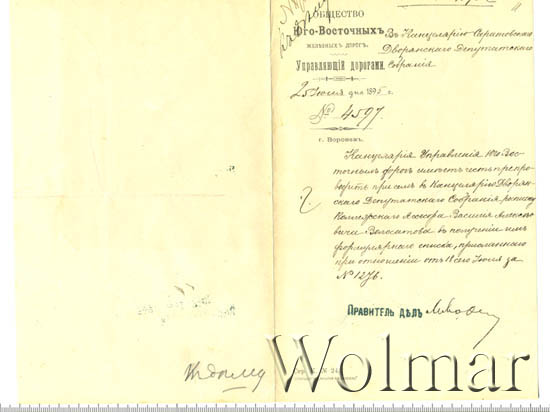 ОБЩЕСТВО
Юго-Восточныхъ
ЖЕЛѢЗНЫХЪ ДОРОГЪ.
Управляющій дорогами.
25 Іюля дня 1895 г.
№ 4597.
г. Воронеж.
Въ Канцелярію Саратовскаго
Дворянскаго Депутатскаго
Собранія
Канцелярія Управленія Юго-Вос-
точныхъ дорогъ имѣетъ честь препро-
водить при семъ въ Канцелярію Дворян-
скаго Депутатскаго Собранія росписку
Коллежскаго Ассесора Василія Алексѣе-
вича Волосатова въ полученіи имъ
формулярнаго списка, присланнаго
при отношеніи отъ 11 сего Іюля за
№ 1276.
ПРАВИТЕЛЬ ДѢЛЪ
Къ дѣлу
Wolmar